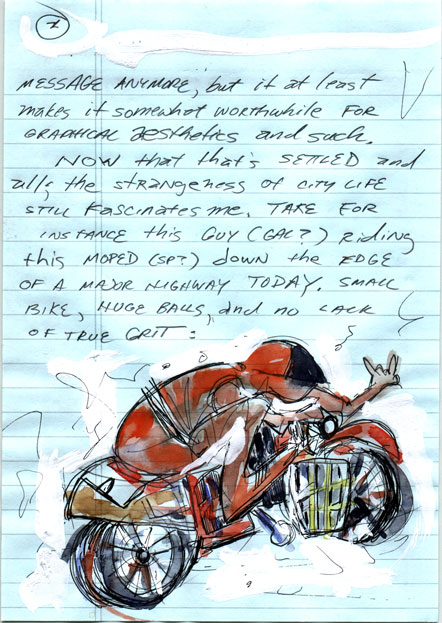 7
MESSAGE ANYMORE, but it at least
makes it somewhat WORTHWHILE FOR
GRAPHICAL aesthetics and such.
NOW that that's SETTLED and
all; the STRANGENESS OF CITY LIFE
STILL FASCINATES me. TAKE FOR
INSTANCE this GUY (GAL?) RIDING
this MOPED (SP?) down the EDGE
OF A MAJOR HIGHWAY TODAY. SMALL
BIKE, HUGE BALLS, and no LACK
OF TRUE GRIT: